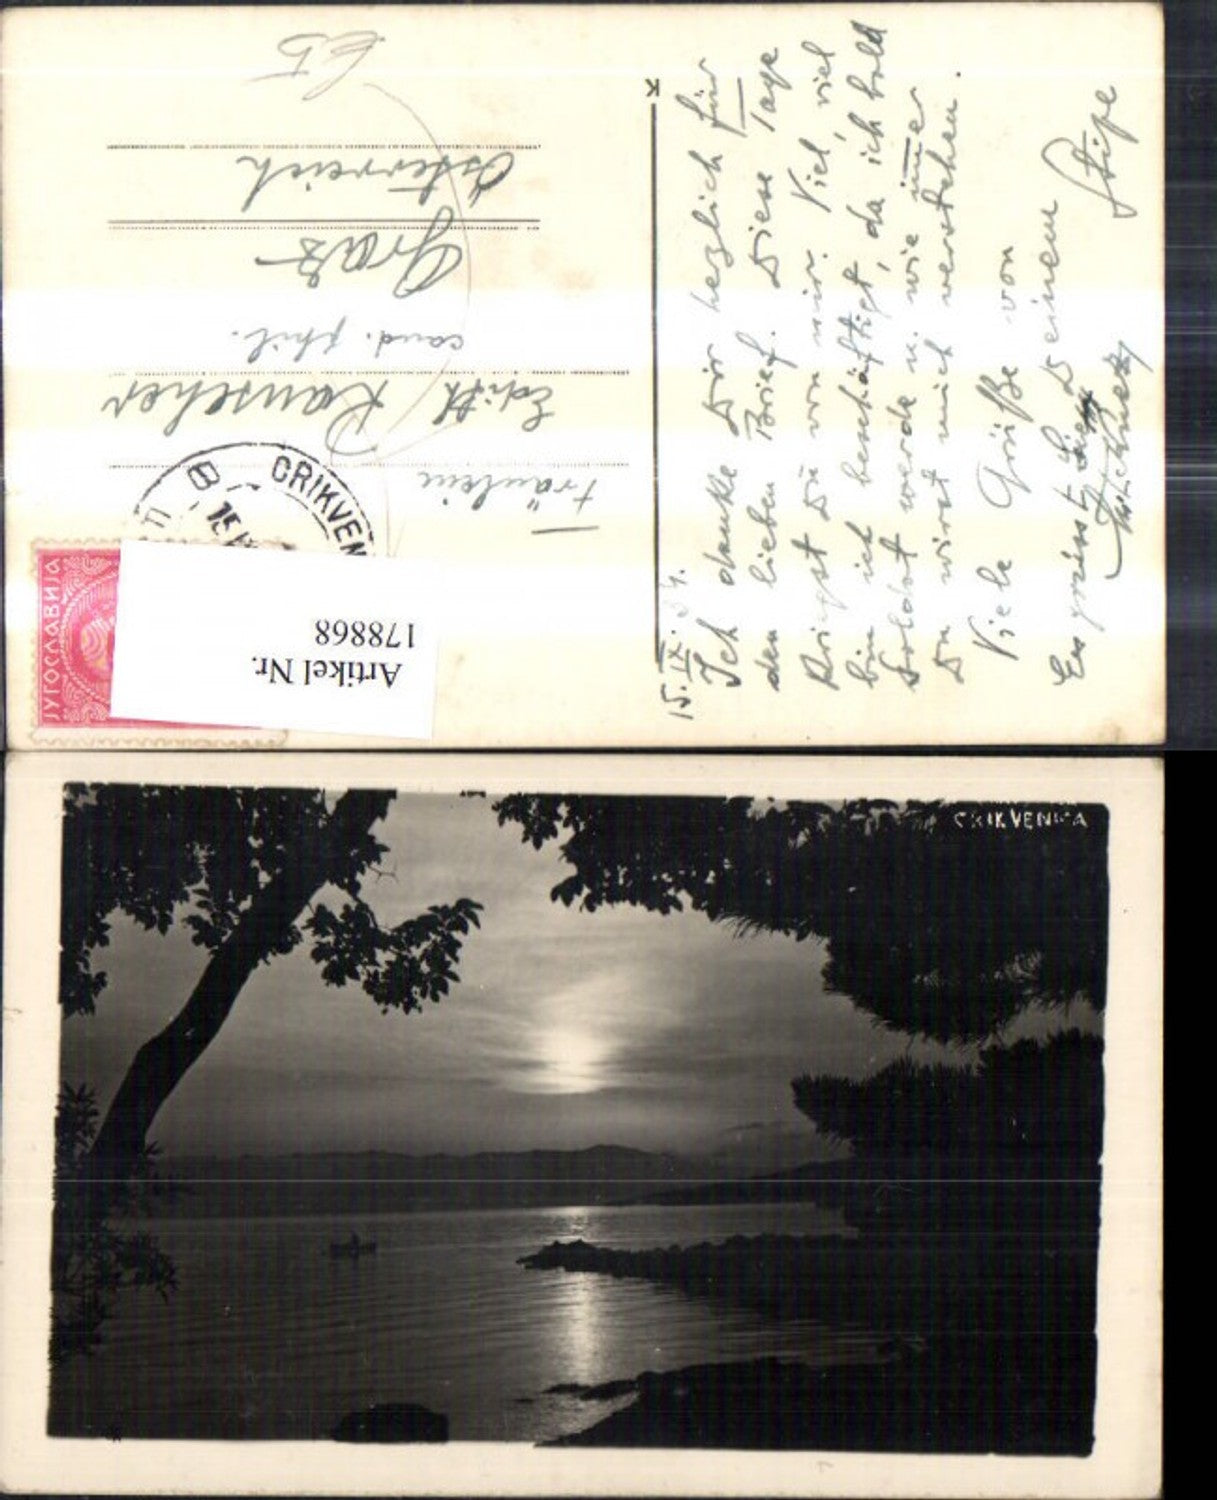 15. IX. 34.
Ich danke Dir herzlich für
den lieben Brief. Diese Tage
kriegst Du von mir. Viel, viel
bin ich beschäftigt, da ich bald
Soldat werde u. wie immer
Du wirst mich verstehen.
Viele Grüße von
Deinem
Stipe
Es grüsst
Fräulein
Edith Rauscher
cand. phil.
Graz
Österreich
CRIKVEN
15
B
ЈУГОСЛАВИЈА
Artikel Nr.
178868
CRIKVENICA